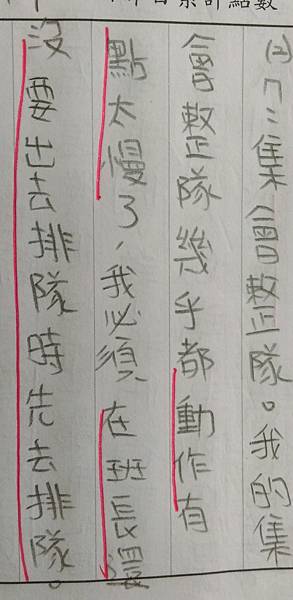 累計點數
(2)7:集會整隊。我的集
會整隊幾乎都動作有
點太慢了，我必須在班長還
沒要出去排隊時先去排隊。